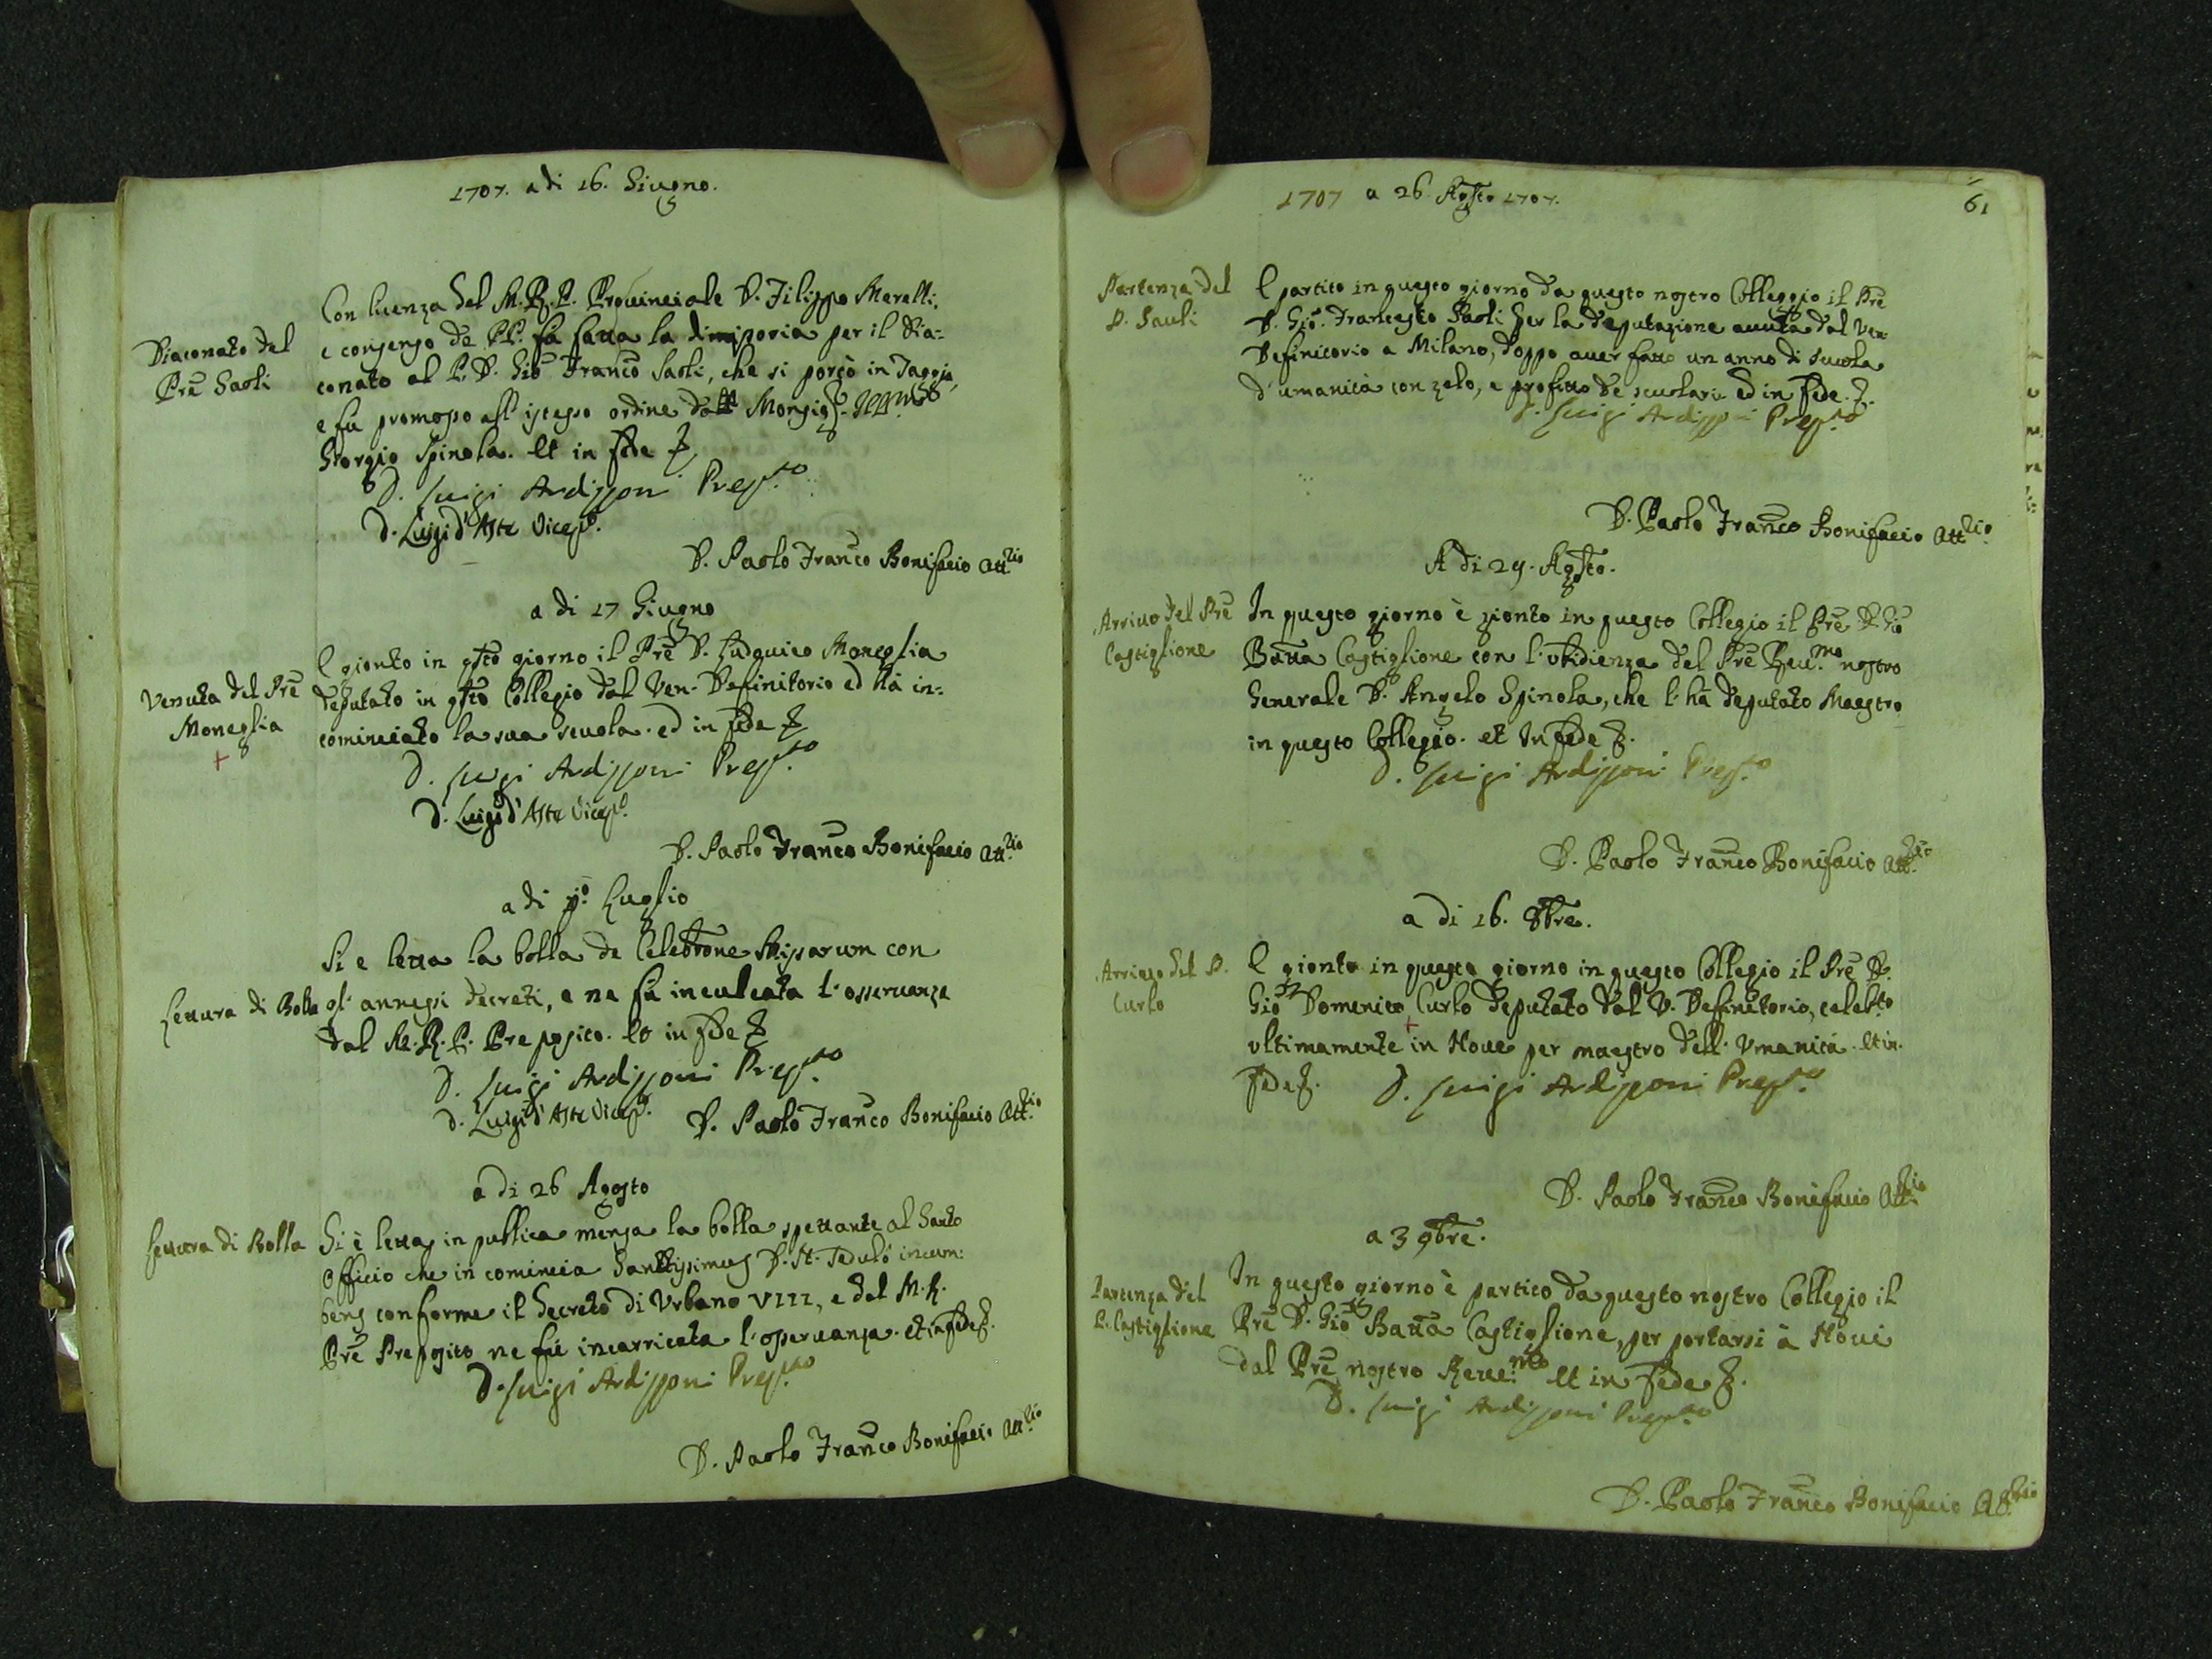 1707. a di 16. Giugno.
Diaconato del
Prē Saoli
Con licenza del M.R.P. Provinciale D. Filippo Merelli,
e consenso de PP. fù fatta la dimissoria per il Dia=
conato al P. D. Gio Franco Saoli, che si portò in Taggia,
e fù promosso all' istesso ordine da Monsig.r
Giorgio Spinola. Et in fede
D. Luigi Ardizzoni Prep.to
D. Luigi d'Aste Vicep.o
D. Paolo Franco Bonifacio Att.rio
a di 17 Giugno
Venuta del Prē
Moneglia
E gionto in q̄sto giorno il Prē D. Ludovico Moneglia
deputato in q̄sto Collegio dal Ven. Definitorio ed hà in=
cominciato la sua scuola. ed in fede
D. Luigi Ardizzoni Prep.to
D. Luigi d'Aste Vicep.o
D. Paolo Franco Bonifacio Att.rio
a di p.o Luglio
Lettura di Bolla
Si e letta la bolla de Celebr̄one Missarum con
gl' annessi decreti, e ne fù inculcata l'osservanza
dal M.R.P. Preposito. Et in fede
D. Luigi Ardizzoni Prep.to
D. Luigi d'Aste Vicep.o
D. Paolo Franco Bonifacio Att.rio
a di 26 Agosto
Lettura di Bolla
Si è letta in publica mensa la bolla spettante al Santo
Officio che in comincia Sanctissimus D. N. Seduló incum=
bens conforme il Decreto di Urbano VIII, e dal M.R.
Prē Preposito ne fù incarricata l'osservanza. et in fede
D. Luigi Ardizzoni Prep.to
D. Paolo Franco Bonifacio Att.rio
1707 a 26 Agsto 1707.
61
Partenza del
P. Sauli
E partito in questo giorno da questo nostro Colleggio il Prē
D. Gio. Francesco Saoli per la deputazione avuta dal Ven
Definitorio a Milano, doppo aver fatto un anno di scuola
d'umanità con zelo, e profitto de scuolari ed in fede.
D. Luigi Ardizzoni Prep.to
D. Paolo Franco Bonifacio Att.rio
A di 29. Agsto.
Arrivo del Prē
Castiglione
In questo giorno è gionto in questo Collegio il Prē D. Gio
Batta Castiglione con l'ubidienza del Prē Rev.mo nostro
Generale D. Angelo Spinola, che l'hà deputato Maestro
in questo Collegio. et In fede
D. Luigi Ardizzoni Prep.to
D. Paolo Franco Bonifacio Att.rio
a di 16. 8bre.
Arrivo del P.
Curlo
E gionto in questo giorno in questo Collegio il Prē D.
Gio Domenico Curlo deputato dal V. Definitorio, celeb.to
ultimamente in Nove per maestro dell' Umanità. Et in
fede. D. Luigi Ardizzoni Prep.to
D. Paolo Franco Bonifacio Att.rio
a 3 9bre.
Partenza del
P. Castiglione
In questo giorno è partito da questo nostro Collegio il
Prē D. Gio Batta Castiglione, per portarsi à Novi
dal Prē nostro Reve.mo Et in fede
D. Luigi Ardizzoni Prep.to
D. Paolo Franco Bonifacio Att.rio